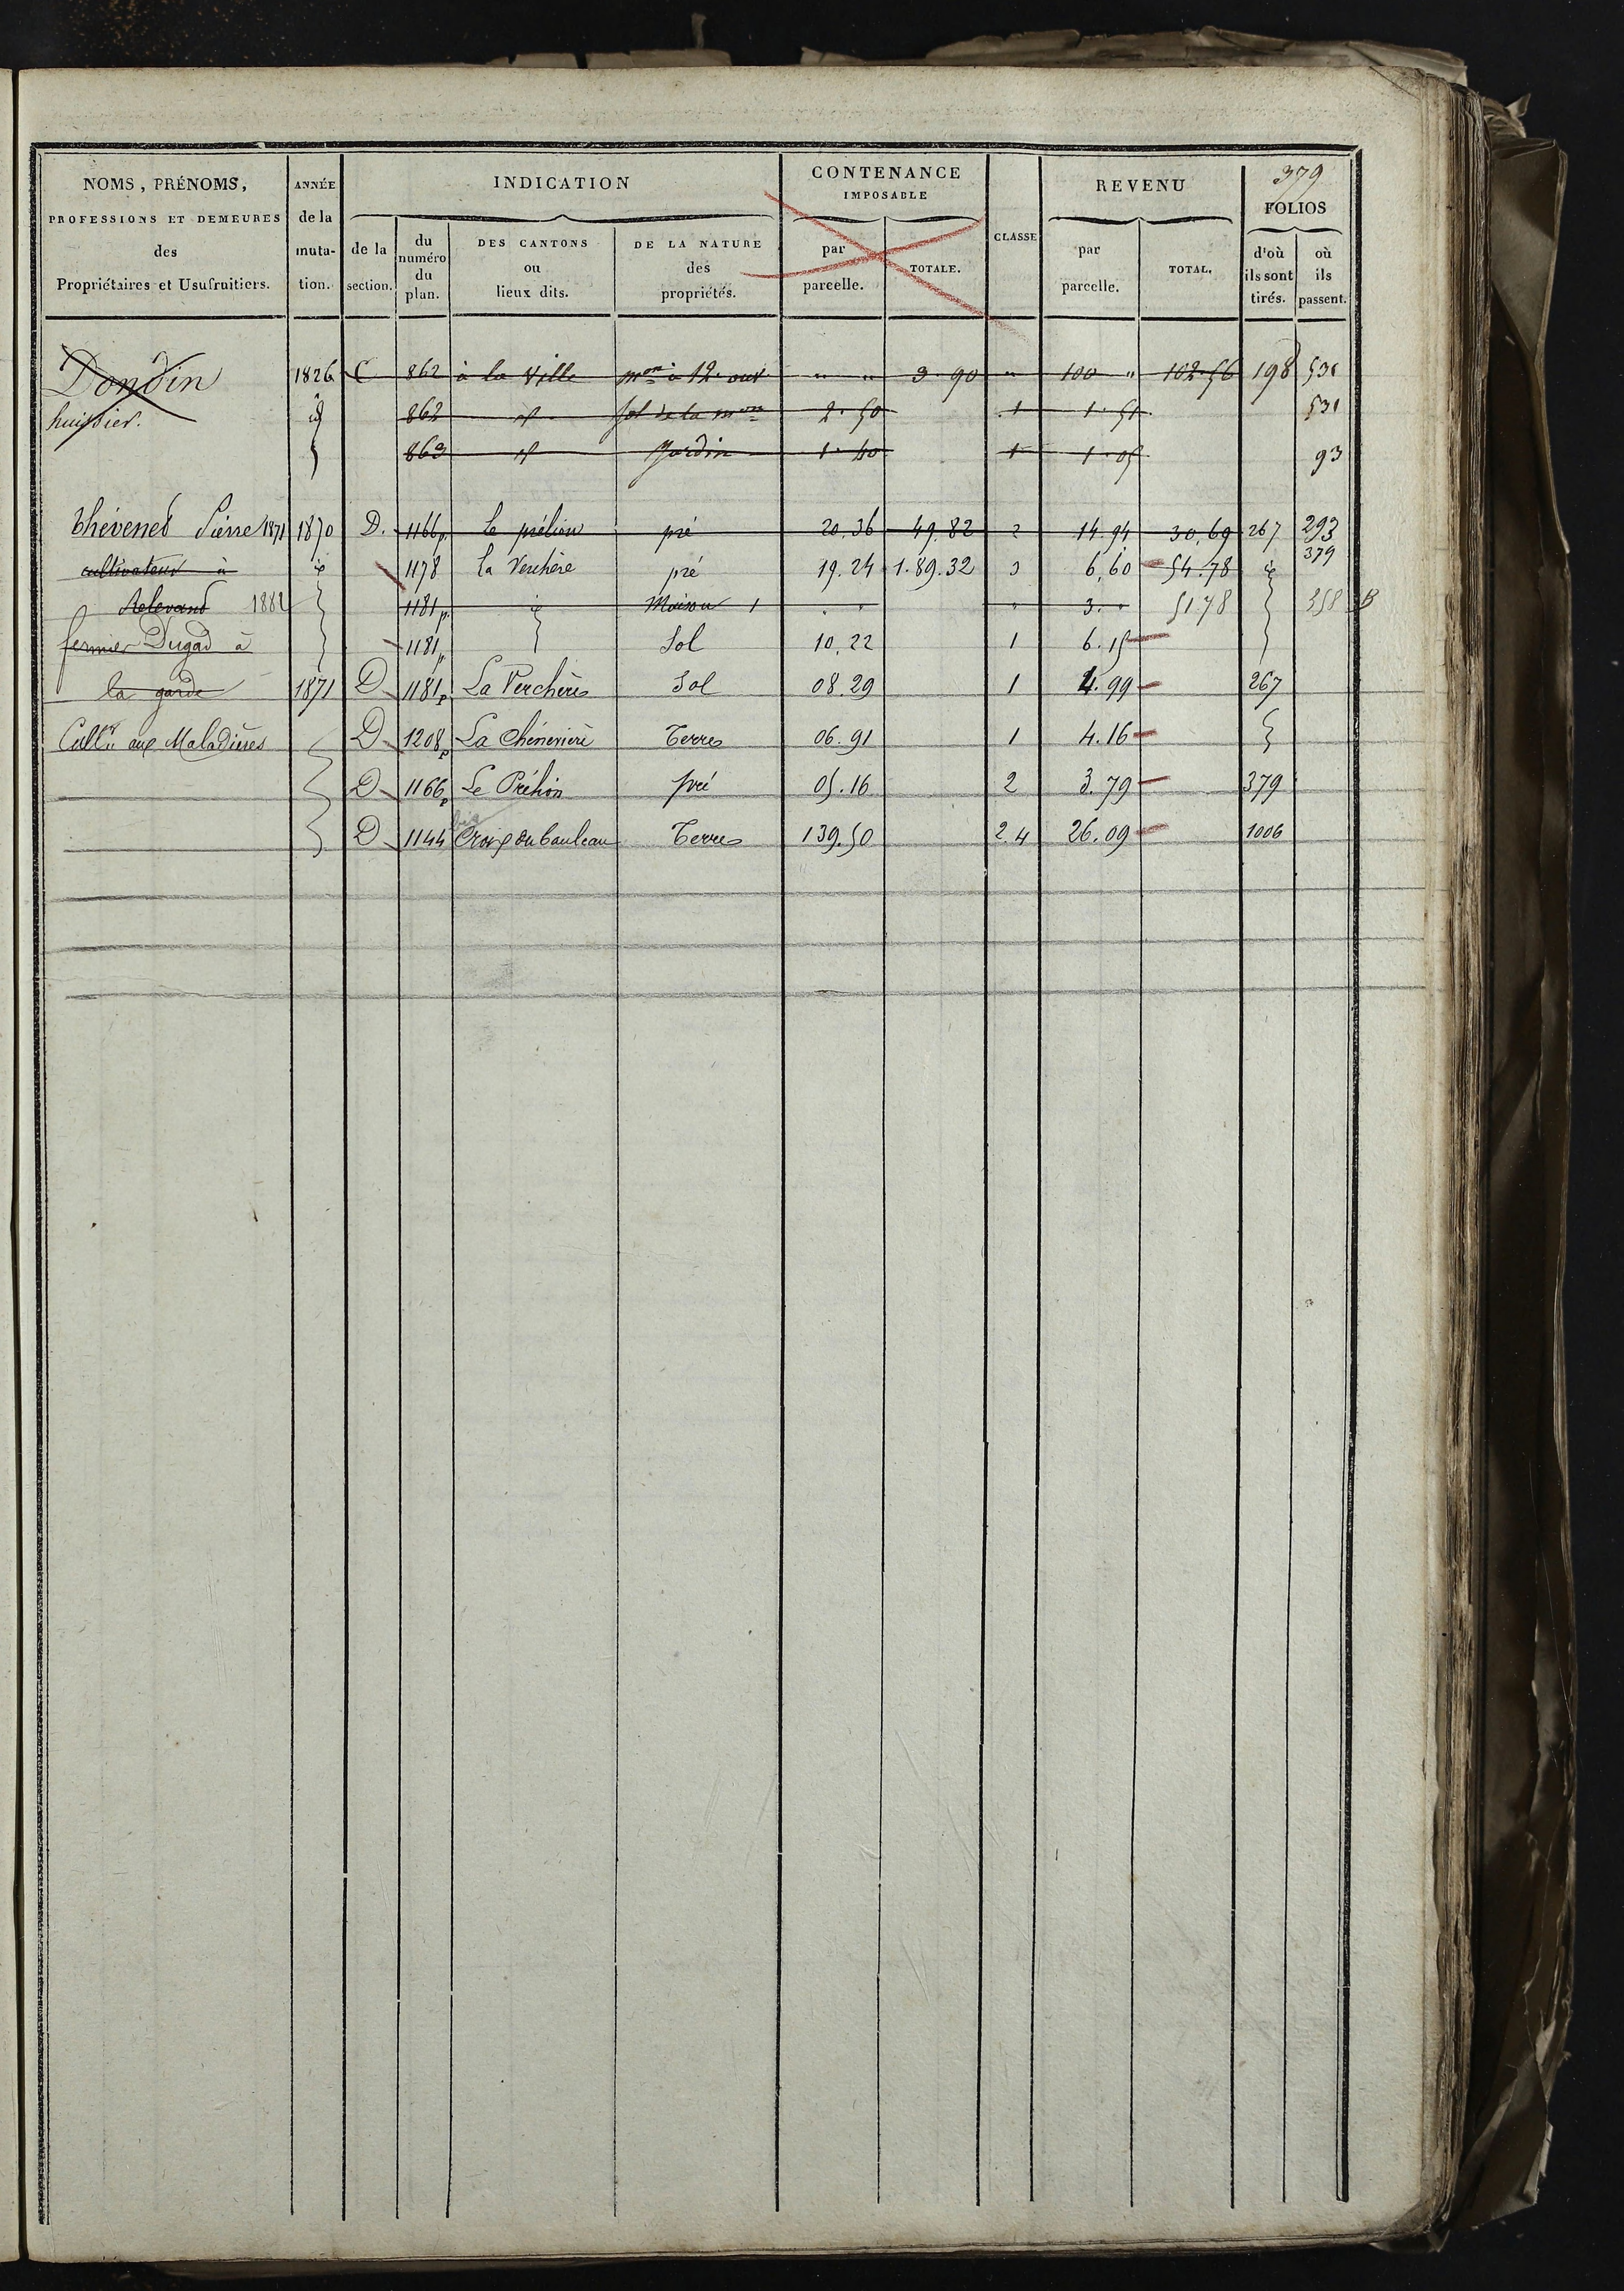 379
NOMS, PRÉNOMS, PROFESSIONS ET DEMEURES des Propriétaires et Usufruitiers.
ANNÉE de la muta- tion.
INDICATION
de la section.
du numéro du plan.
DES CANTONS ou lieux dits.
DE LA NATURE des propriétés.
CONTENANCE IMPOSABLE
par parcelle.
TOTALE.
CLASSE
REVENU
par parcelle.
TOTAL.
FOLIOS
d'où ils sont tirés.
où ils passent.
Dondin 1826 C 862 à la Ville mon à 12 ouv. " " 3 90 " 100 " 102 56 198 531
huissier. id 862 id Sol de la mon 2 50 1 1 51 531
863 id Jardin 1 40 1 1 05 93
Thévenet Pierre 1871 1870 D. 1166p. Le prélion pré 20.36 49.82 2 14.94 30.69 267 293
379
cultivateur à id 1178 La Verchère pré 19.24 1.89.32 3 6.60 54.78 id
1882 1181p. id Maison 1 " " " 3. " 51 78 358 B
fermier Dugad à 1181p Sol 10.22 1 6.15
la garde 1871 D 1181p La Verchère Sol 08.29 1 4.99 267
Cultr aux Maladières D 1208p La Chénevière Terres 06.91 1 4.16
D 1166p Le Prélion pré 05.16 2 3.79 379
D 1144 Croix du Bauleau Terres 139.50 2.4 26.09 1006